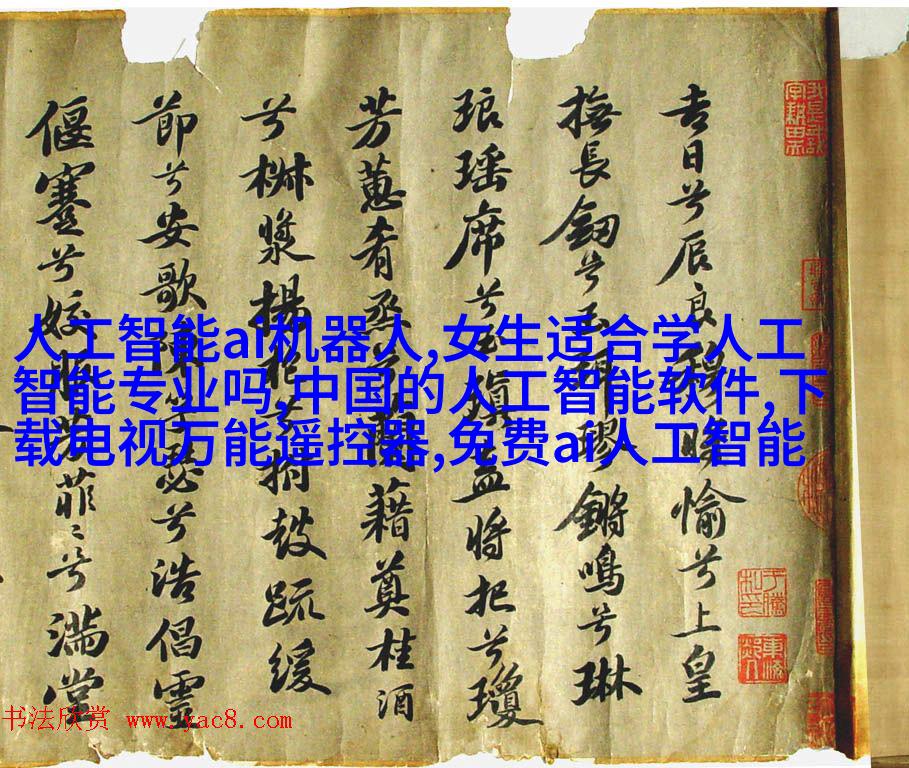 吉日兮辰良穆將愉兮上皇
撫長劒兮玉珥璆鏘鳴兮琳
琅瑶席兮玉瑱盍將把兮瓊
芳蕙肴烝兮蘭藉奠桂酒
兮椒漿揚枹兮拊鼓疏緩
節兮安歌陳竽瑟兮浩倡靈
偃蹇兮姣服芳菲〻兮滿堂
人工智能ai机器人,女生适合学人工
智能专业吗,中国的人工智能软件,下
载电视万能遥控器,免费ai人工智能
书法欣赏 www.yac8.com